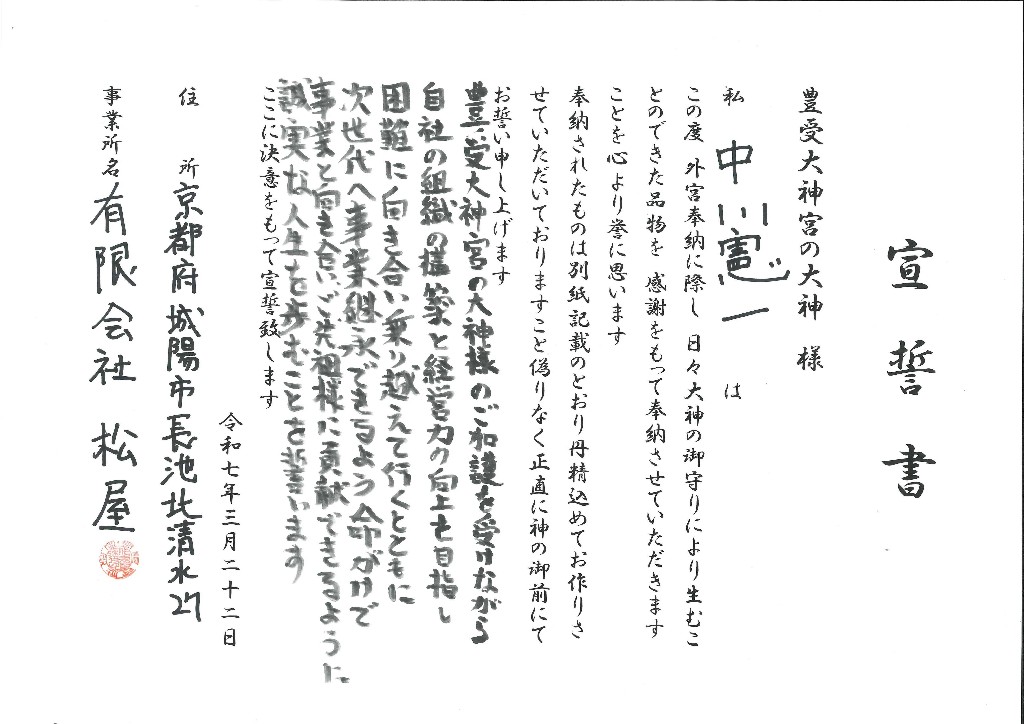 宣誓書
豊受大神宮の大神 様
私 中川憲一 は
この度 外宮奉納に際し 日々大神の御守りにより生むこ
とのできた品物を 感謝をもって奉納させていただきます
ことを心より誉に思います
奉納されたものは別紙記載のとおり丹精込めてお作りさ
せていただいておりますこと偽りなく正直に神の御前にて
お誓い申し上げます
豊受大神宮の大神様のご加護を受けながら
自社の組織の構築と経営力の向上を目指し
困難に向き合い乗り越えて行くとともに
次世代へ事業継承できるよう命がけで
事業と向き合い、ご先祖様に貢献できるように
誠実な人生を歩むことを誓います
ここに決意をもって宣誓致します
令和七年三月二十二日
住 所 京都府城陽市長池北清水27
事業所名 有限会社 松屋